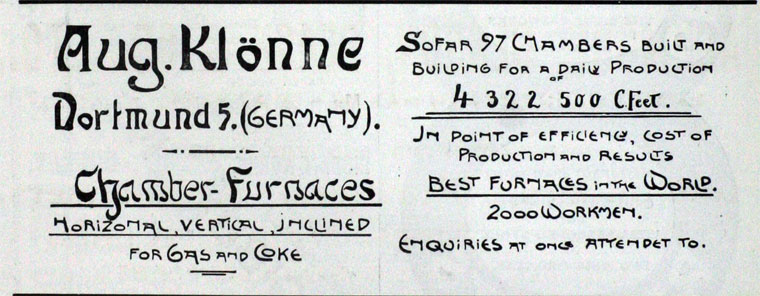 Aug. Klönne
Dortmund 5. (GERMANY).
Chamber-Furnaces
HORIZONAL, VERTICAL, INCLINED
FOR GAS AND COKE
SOFAR 97 CHAMBERS BUILT AND
BUILDING FOR A DAILY PRODUCTION
OF
4 322 500 C.Feet.
IN POINT OF EFFICIENCY, COST OF
PRODUCTION AND RESULTS
BEST FURNACES IN THE WORLD.
2000 WORKMEN.
ENQUIRIES AT ONCE ATTENDET TO.